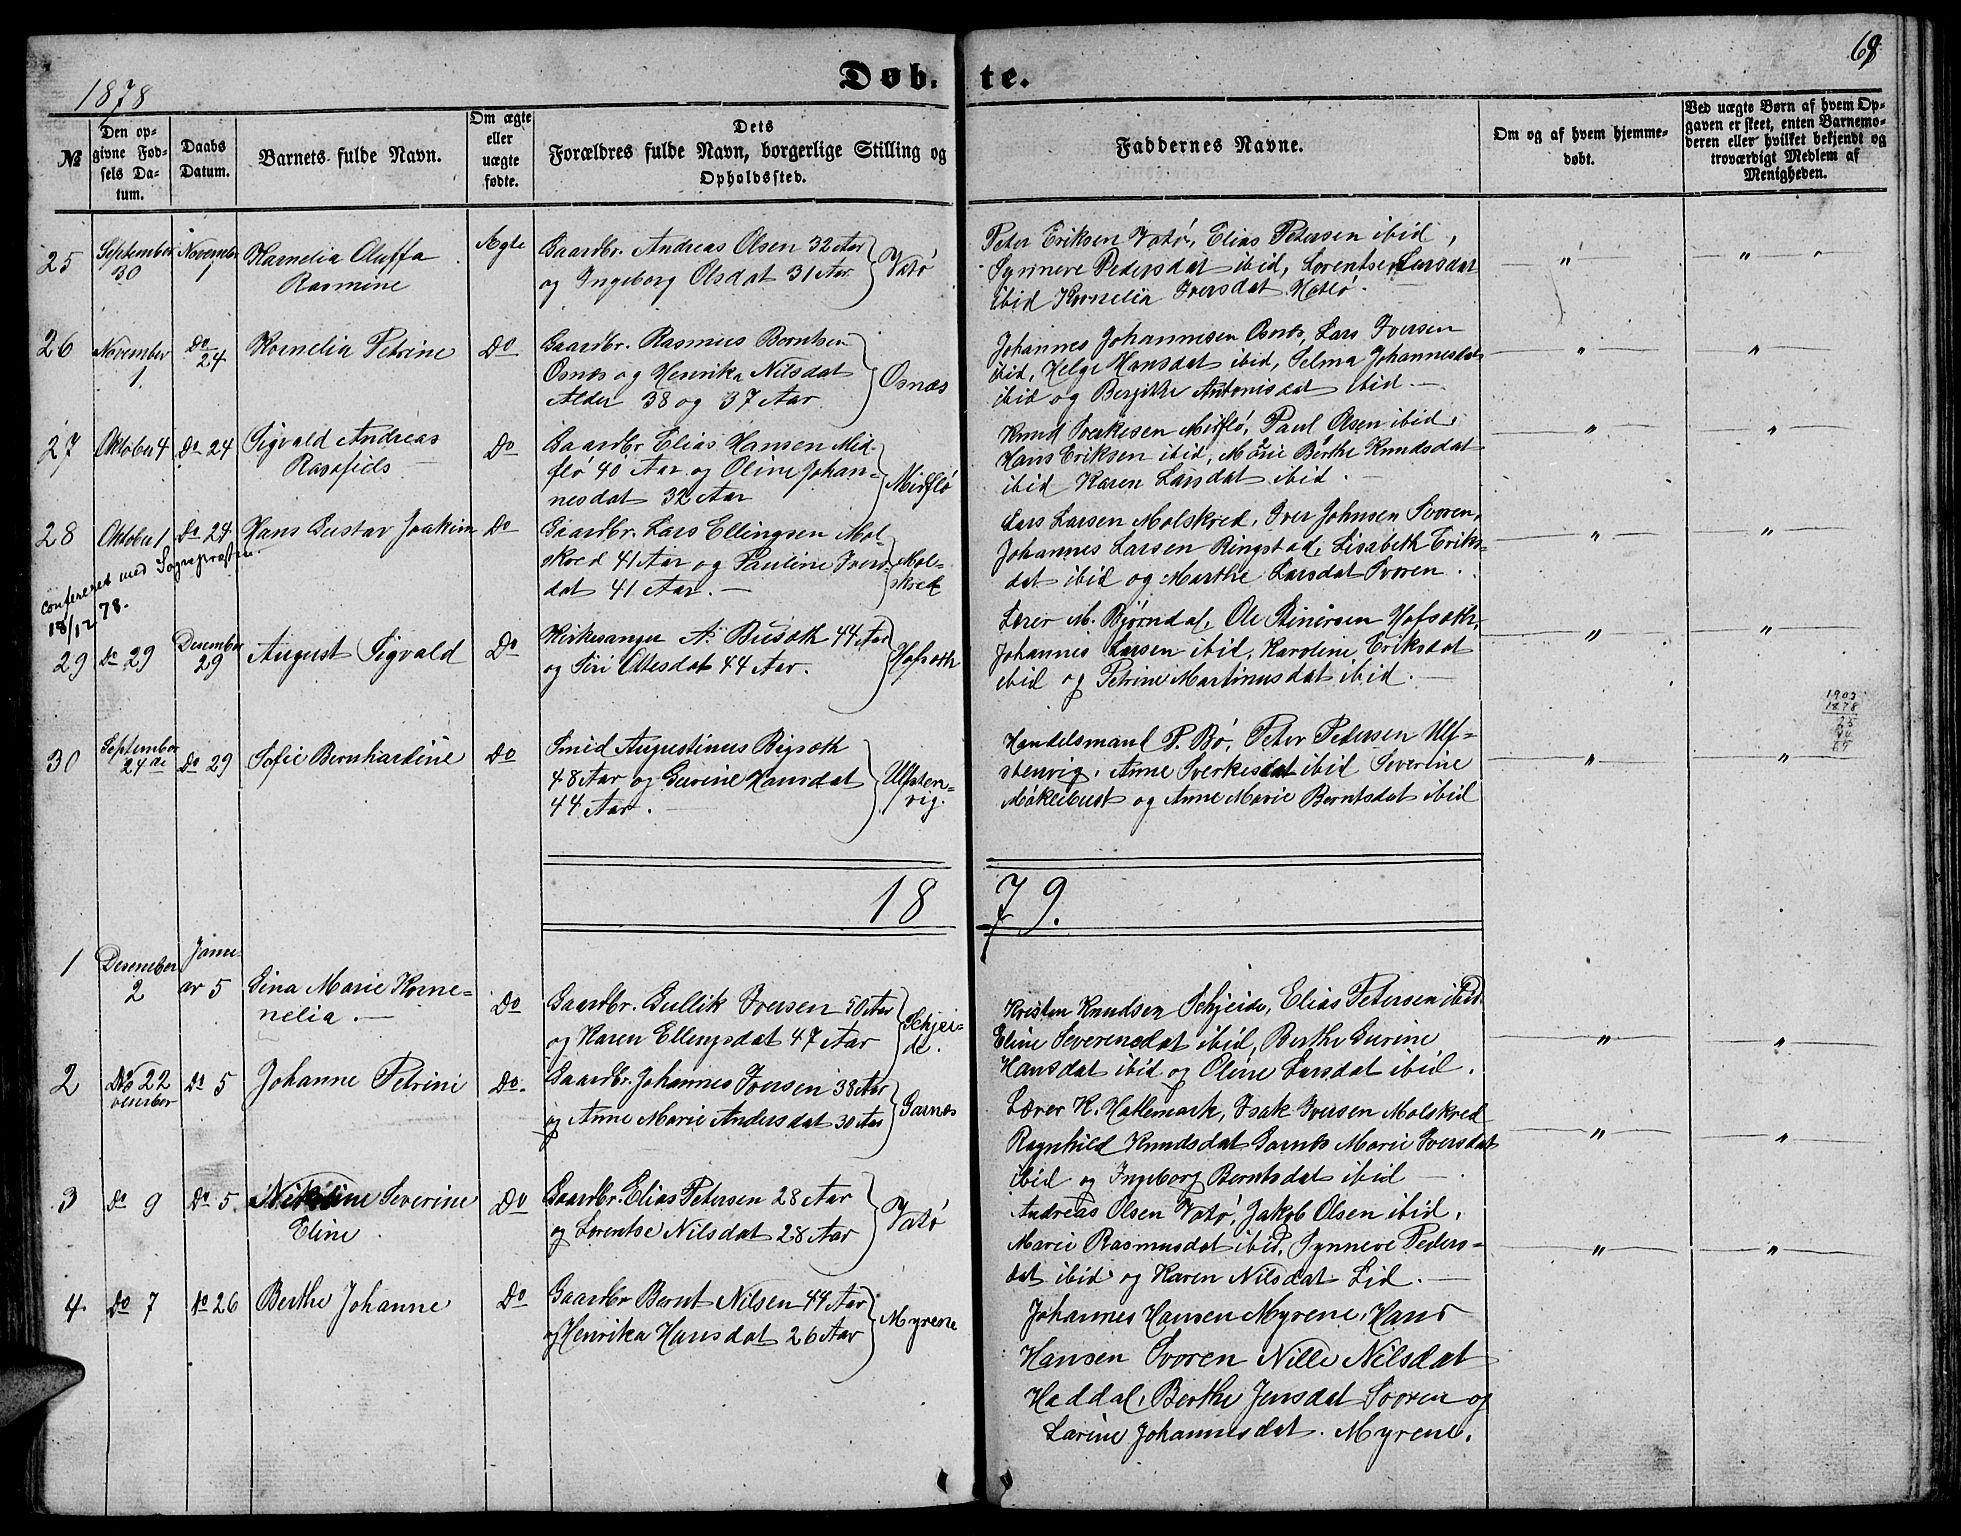 1878
Døb-
te.
69
№
Den op-
givne Fød-
sels Da-
tum.
Daabs
Datum.
Barnets fulde Navn.
Om ægte
eller
uægte
fødte.
Dets
Forældres fulde Navn, borgerlige Stilling og
Opholdssted.
Faddernes Navne.
Om og af hvem hjemme-
døbt.
Ved uægte Børn af hvem Op-
gaven er skeet, enten Barnemo-
deren eller hvilket bekjendt og
troværdigt Medlem af
Menigheden.
25
September
30
November
1
Karnelia Oluffa
Rasmine
Ægte
Gaardbr. Andreas Olsen 32 Aar
og Ingeborg Olsdat 31 Aar
Vatø
Peter Eriksen Vatø, Elias Petersen ibid,
Synneve Pedersdat ibid, Lorentse Larsdat
ibid Kornelia Iversdat Hatlø.
26
November
1.
Do
24
Kornelia Petrine
Do
Gaardbr. Rasmus Berntsen
Osnæs og Henrika Nilsdat
Alder 38 og 37 Aar
Osnæs
Johannes Johannesen Osnæs, Lars Iversen
ibid, Helge Hansdat ibid, Selma Johannesdat
ibid og Bergithe Antonisdat ibid.
27
Oktober 4
Do 24
Sigvald Andreas
Do
Gaardbr Elias Hansen Mid-
flø 40 Aar og Oline Johan-
nesdat 32 Aar
Midflø
Knud Sverkesen Midflø, Paul Olsen ibid,
Hans Eriksen ibid, Marie Berthe Knudsdat
ibid Karen Larsdat ibid.
28
Oktober 1
Do 24
Hans Gustav Joakim
Do
Gaardbr. Lars Ellingsen Mol-
skred 41 Aar og Pauline Ivers-
dat 41 Aar.
Mol-
skred
Lars Larsen Molskred, Iver Johnsen Svoren,
Johannes Larsen Ringstad, Lisabeth Eriks-
dat ibid og Marthe Larsdat Svoren.
Confereret med Sognepræsten.
18/12 78.
29
Do 29
Desember
29
August Sigvald
Do
Kirkesanger A. Busæth 44 Aar
og Siri Ottesdat 44 Aar.
Hofsæth
Lærer M. Bjørndal, Ole Steinersen Hofsæth,
Johannis Larsen ibid, Karoline Eriksdat
ibid og Petrine Martinusdat ibid.
30
September
24de
Do 29
Sofie Bernhardine
Do
Smid Augustinus Bigsæth
48 Aar og Gurine Hansdat
44 Aar.
Ulfsten-
vig.
Handelsmand P. Bø, Peter Pedersen Ulf-
stenvig, Anne Sverkesdat ibid Severine
Møklebust og Anne Marie Berntsdat ibid
1903
1878
25
18
79.
1
Desember
2
Janu-
ar 5
Gina Marie Korne-
nelia.
Do
Gaardbr. Gullik Iversen 50 Aar
og Karen Ellingsdat 47 Aar
Schjei-
de.
Kristen Knudsen Schjeide, Elias Petersen ibid
Eline Severensdat ibid, Berthe Gurine
Hansdat ibid og Oline Larsdat ibid.
2
No 22
vember
Do 5
Johanne Petrine
Do.
Gaardbr. Johannes Iversen 38 Aar
og Anne Marie Andersdat 30 Aar
Garnæs
Lærer K. Hatlemark, Isak Iversen Molskred
Ragnhild Knudsdat Garnæs Marie Iversdat
ibid og Ingeborg Berntsdat ibid
3
Do 9
Do 5
Nikoline Severine
Eline
Do
Gaardbr. Elias Petersen 28 Aar
og Lorentse Nilsdat 28 Aar
Vatø
Andreas Olsen Vatø, Jakob Olsen ibid,
Marie Rasmusdat ibid, Synneve Peders-
dat ibid og Karen Nilsdat Lid.
4
Do 7
Do 26
Berthe Johanne
Do
Gaardbr Bernt Nilsen 44 Aar
og Henrika Hansdat 26 Aar
Myrene
Johannes Hansen Myrene, Hans
Hansen Svoren Nille Nilsdat
Haddal, Berthe Jensdat Svoren og
Larine Johannesdat. Myrene.